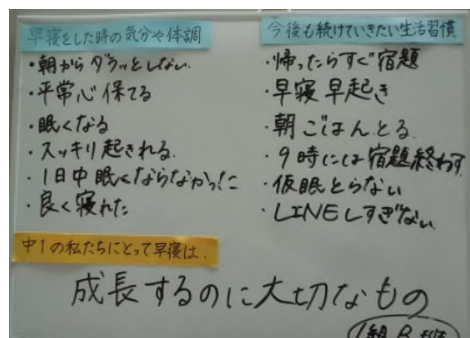 早寝をした時の気分や体調
・朝からダラッとしない
・平常心保てる
・眠くなる
・スッキリ起きれる
・1日中眠くならなかった
・良く寝れた
今後も続けていきたい生活習慣
・帰ったらすぐ宿題
・早寝早起き
・朝ごはんとる
・9時には宿題終わす
・仮眠とらない
・LINEしすぎない
中1の私たちにとって早寝は、
成長するのに大切なもの
1組B班